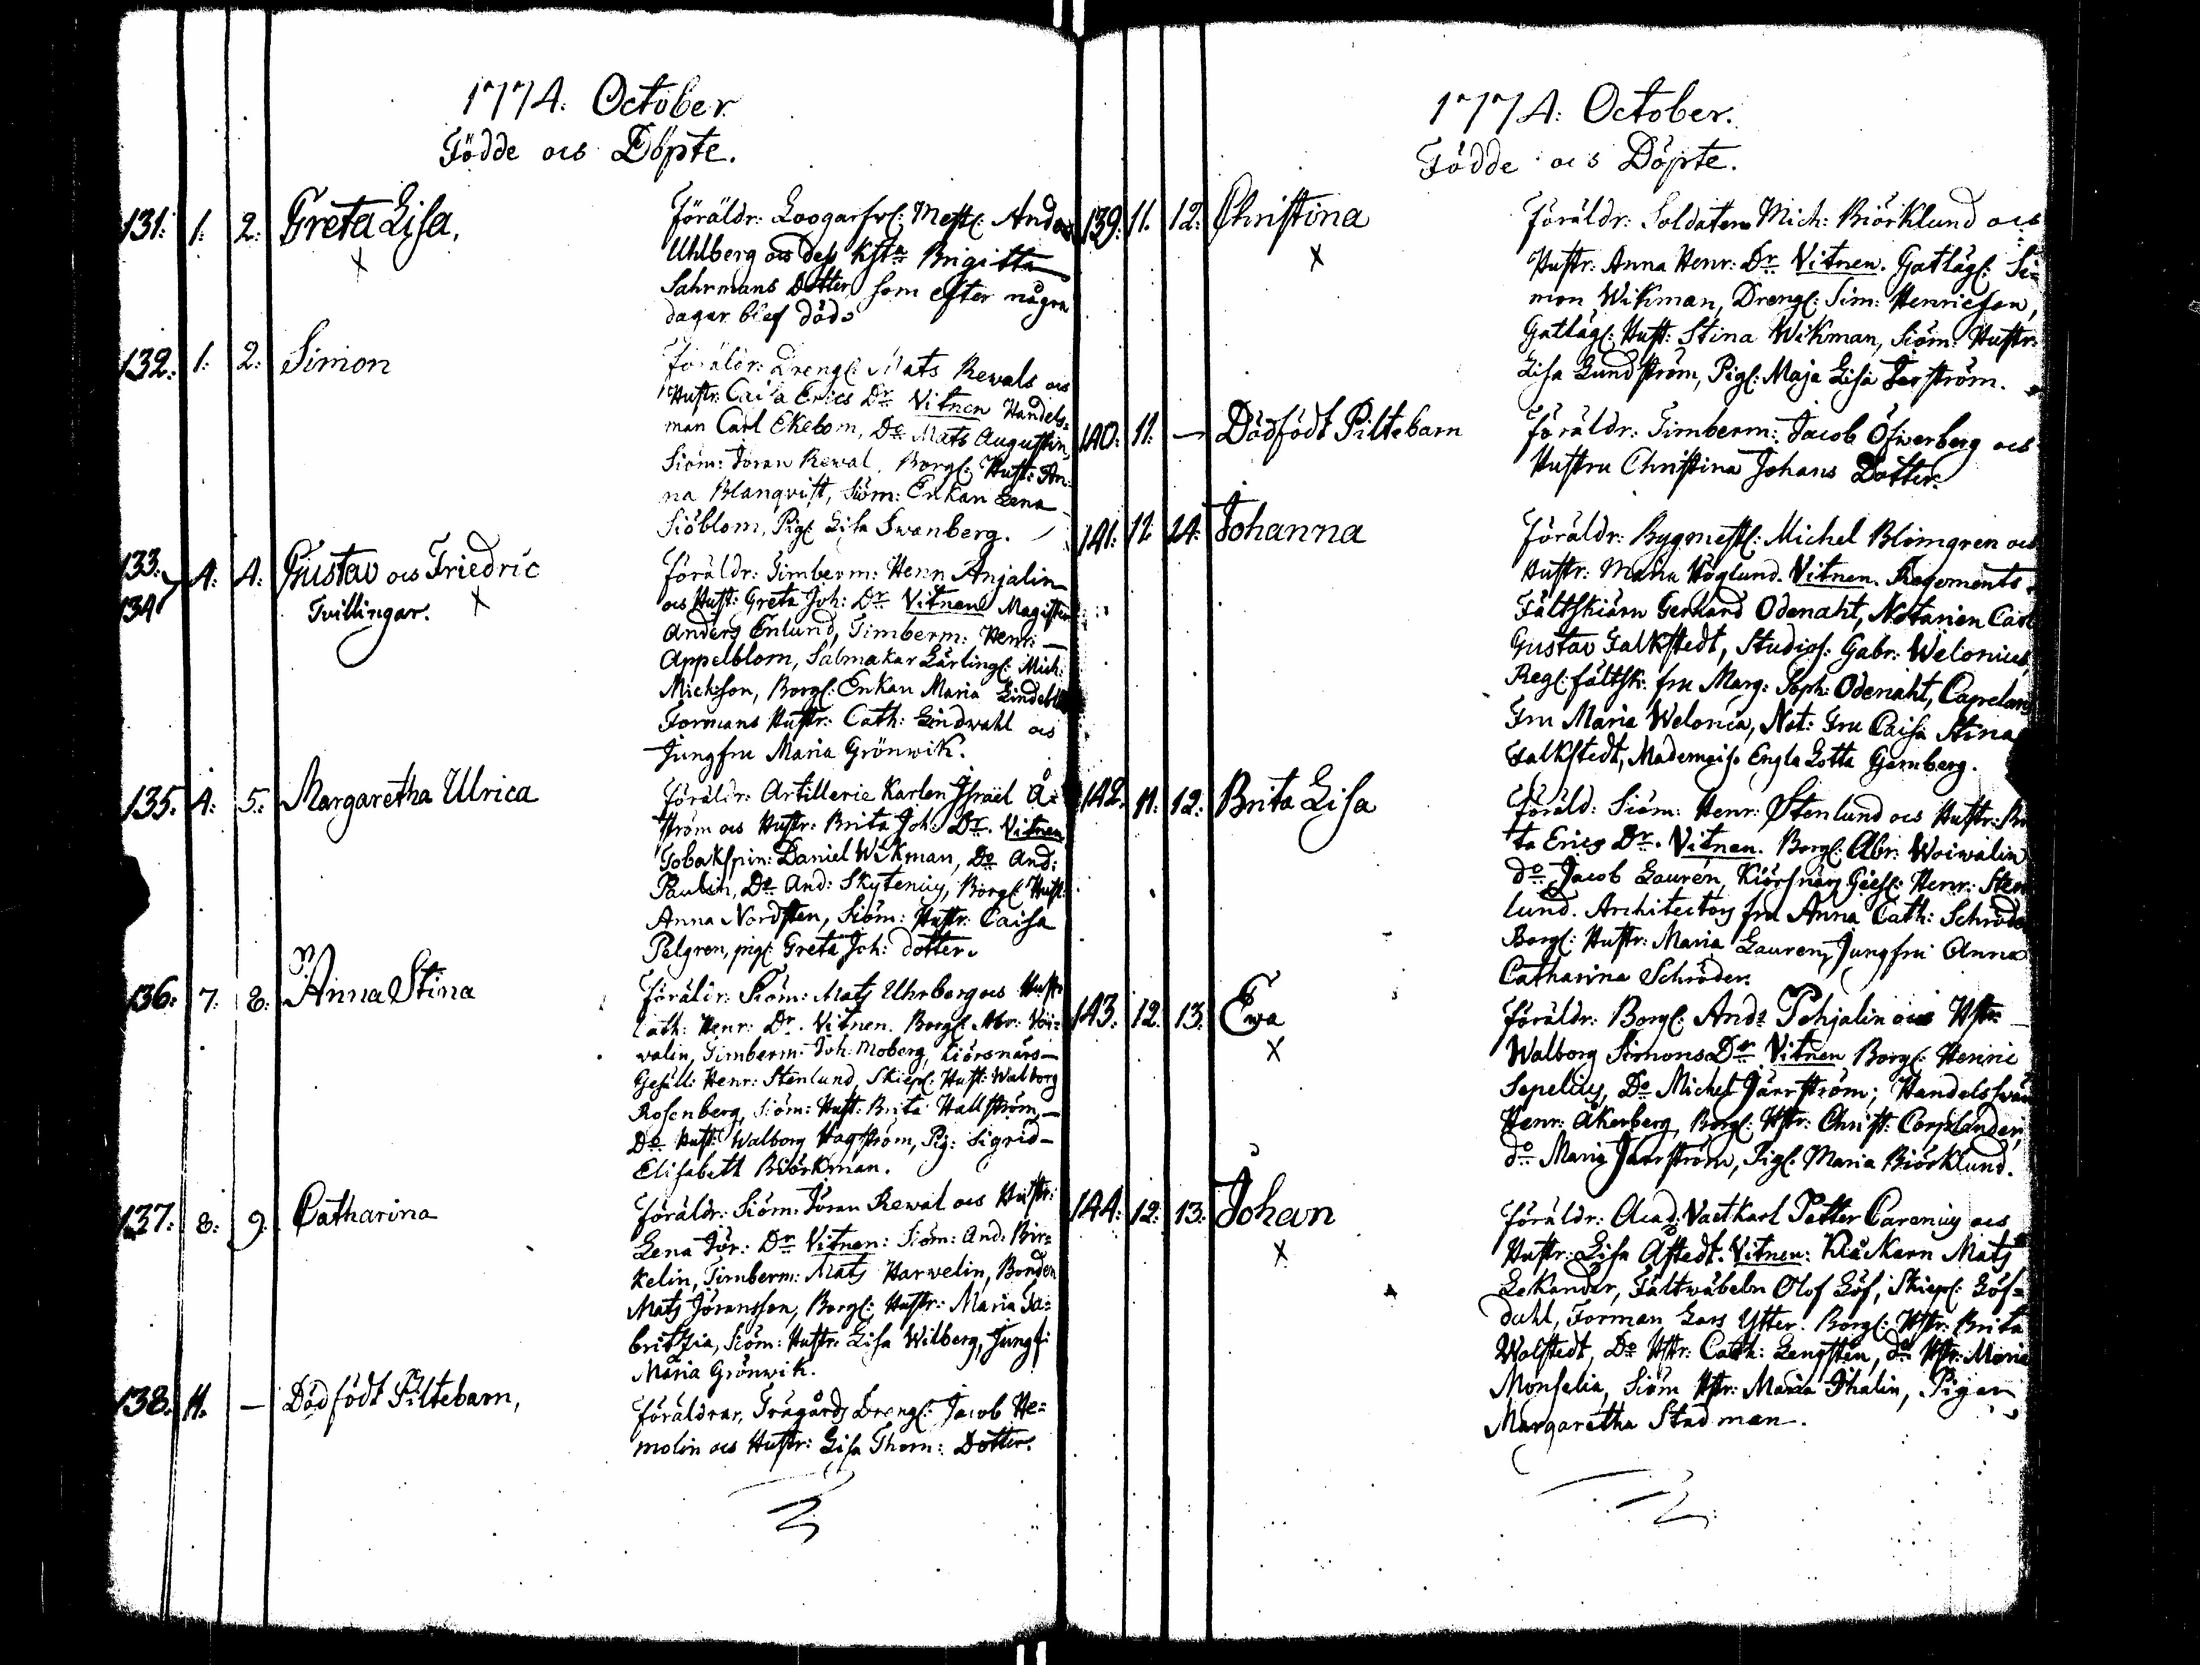 1774. October.
Födde och Döpte.
131. 1. 2. Greta Lisa.
Föräldr: Mestl: Anders
Uhlberg och dess hst:n Brigitta
Sahrmans Dotter som efter några
dagar blef död.
132. 1. 2. Simon
Föräldr: Drengl: Mats Rewals och
Hustr: Caisa Erics Dr Vitnen Handels=
man Carl Ekebom, Do Mats Augustin,
Siöm: Jöran Rewal, Borgl: Hust: An=
na Blanqvist, Siöm: Enkan Lena
Siöblom, Pigl: Lisa Swanberg.
133. 134 4. 4. Gustav och Friedric
Tvillingar.
Föräldr: Timberm: Henr Anjalin
och Hust: Greta Joh: Dr Vitnen Magister
Anders Enlund, Timberm: Henr:
Appelblom, Salmakar Lärlingl: Mich:
Micksson, Borgl: Enkan Maria
Formans Hustr: Cath: Lindwahl och
Jungfru Maria Grönwik.
135. 4. 5. Margaretha Ulrica
Föräldr: Artillerie Karlen Israel Å=
ström och Hustr: Brita Joh: Dr. Vitnen
Tobakspin: Daniel Wikman, Do And:
Paulin, Do And: Skytenius, Borgl: Hust:
Anna Nordsten, Siöm: Hustr: Caisa
Pelgren, pigl: Greta Joh: dotter.
136. 7. 8. Anna Stina
Föräldr: Siöm: Mats Uhrberg och Hustr
Cath: Henr: Dr. Vitnen. Borgl: Abr: Voi=
walin, Timberm: Joh: Moberg, Kiörsnärs
Gesäll: Henr: Stenlund, Skiepl: Hust: Walborg
Rosenberg, Siöm: Hust: Brita Hallström,
Do Hust: Walborg Hagström, Pig: Sigrid
Elisabeth Biörkman.
137. 8. 9. Catharina
Föräldr: Siöm: Jöran Rewal och Hustr:
Lena Jör: Dr Vitnen: Siöm: And: Bir=
kelin, Timberm: Mats Harwelin, Bonden
Mats Jöransson, Borgl: Hustr: Maria Fa=
britzia, Siöm: Hustr: Lisa Wilberg, Jungf:
Maria Grönwik.
138. 11. — Dödfödt Piltebarn,
Föräldrar, Trägårds Drengl: Jacob He=
molin och Hustr: Lisa Thom: Dotter.
1774. October.
Födde och Döpte.
139. 11. 12. Christina
Föräldr: Soldaten Mich: Biörklund och
Hustr: Anna Henr: Dr Vitnen. Gatlägl: Si=
mon Wikman, Drengl: Sim: Henricson,
Gatlägl: Hust: Stina Wikman, Siöm: Hustr:
Lisa Lundström, Pigl: Maja Lisa Forström.
140. 11. — Dödfödt Piltebarn
Föräldr: Timberm: Jacob Öfwerberg och
Hustru Christina Johans Dotter.
141. 11. 14. Johanna
Föräldr: Bygmestl: Michel Blomgren och
Hustr: Maria Höglund. Vitnen. Regements
Fältskiärn Gerhard Odenaht, Notarien Carl
Gustav Falkstedt, Studios: Gabr: Welonius,
Regl: fältsk: fru Marg: Soph: Odenaht, Capelans
Fru Maria Welonia, Not: Fru Caisa Stina
Falkstedt, Mademois: Engla Lotta Gernberg.
142. 11. 12. Brita Lisa
Föräld: Siöm: Henr: Stenlund och Hustr: Bri
ta Erics Dr. Vitnen. Borgl: Abr: Woiwalin
do Jacob Laurén, Kiörsnärs Gesl: Henr: Sten
lund. Architectors fru Anna Cath: Schröder
Borgl: Hustr: Maria Lauren, Jungfru Anna
Catharina Schröder.
143. 12. 13. Ewa
Föräldr: Borgl: And: Pohjalin och Hstr:
Walborg Simons Dr Vitnen Borgl: Henric
Sepelius, Do Michel Järrström; Handelsswän
Henr: Åkerberg, Borgl: Hstr: Christ: Corplander,
do Maria Järrström, Pigl: Maria Biörklund.
144. 12. 13. Johan
Föräldr: Acad: Vactkarl Petter Carenius och
Hustr: Lisa Åstedt. Vitnen: Klåckarn Mats
Lekander, Fältwäbeln Olof Löf, Skiepl: Löf=
dahl, Forman Lars Ytter. Borgl: Hstr: Brita
Walstedt, Do Hstr: Cath: Lengsten, do Hstr: Maria
Monselia, Siöm Hstr: Maria Thalin, Pigan
Margaretha Stadman.